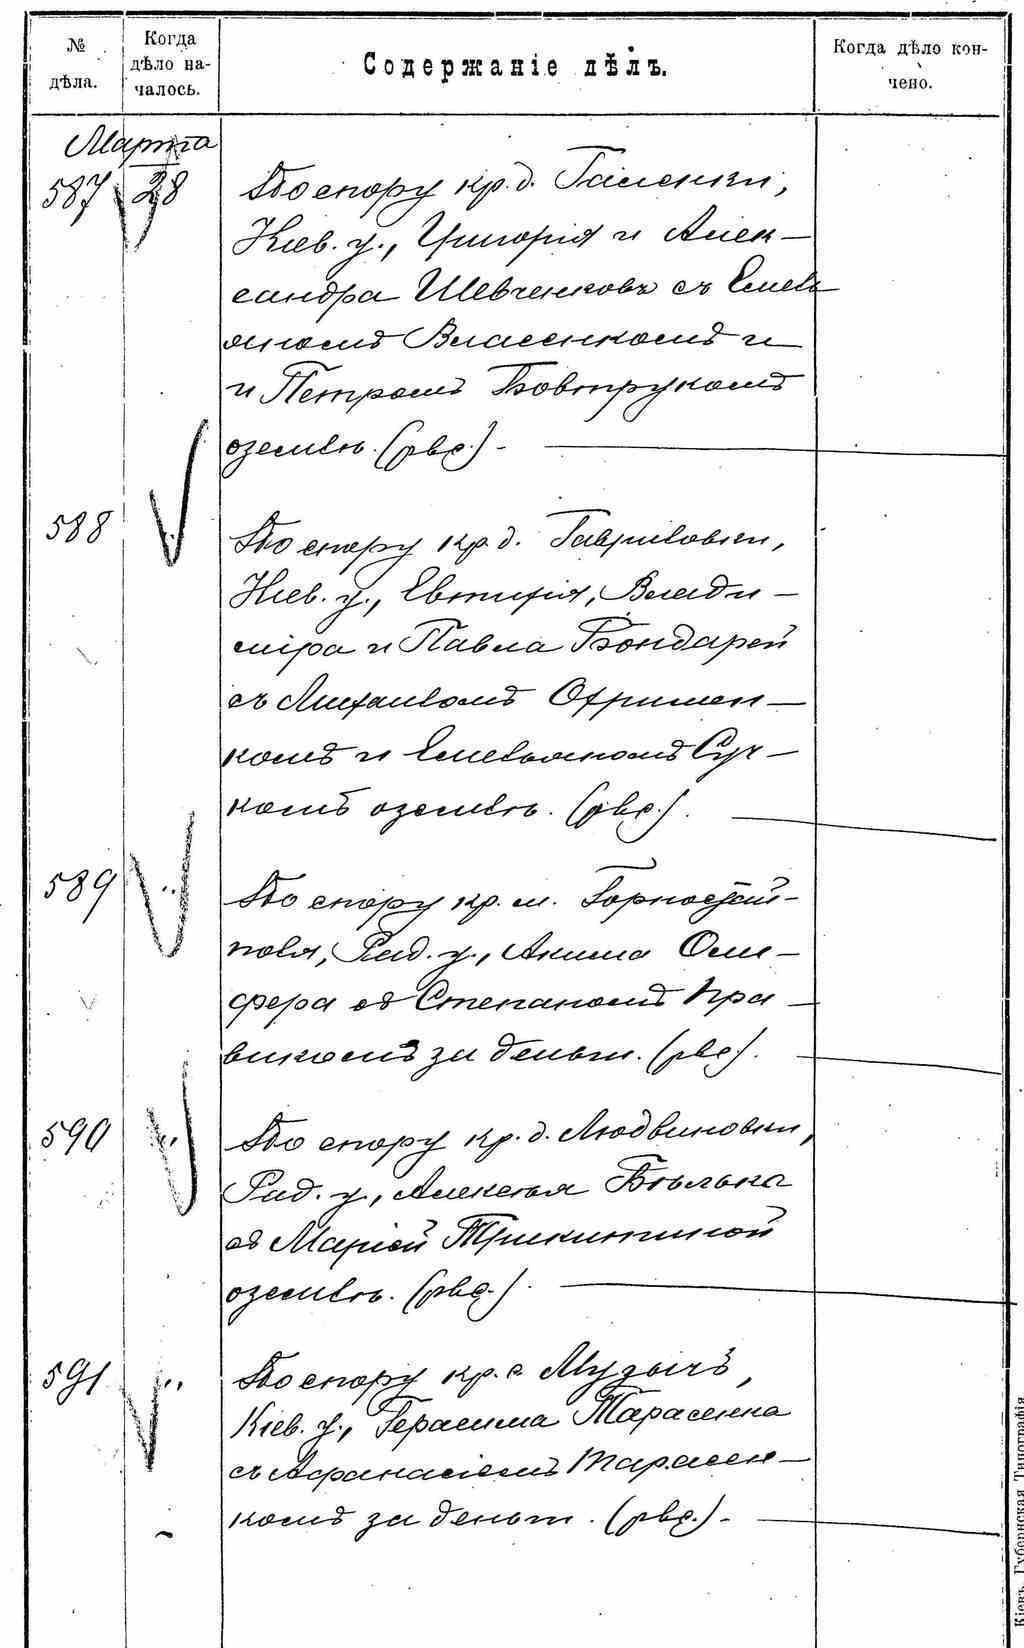 № дѣла.
Когда дѣло на-
чалось.
Содержаніе дѣлъ.
Когда дѣло кон-
чено.
Марта
587 28 По спору кр. д. Галенки,
Кіев. у., Григорія и Алек-
сандра Шевченковъ съ Емель
яномъ Власенкомъ и
и Петромъ Бовтрукомъ
о землѣ. (рвс.). -
588 По спору кр. д. Гавриловки,
Кіев. у., Евтихія, Влади-
міра и Павла Бондарей
съ Михаиломъ Охримен-
комъ и Емельяномъ Суч-
комъ о землѣ. (рвс.).
589 „ По спору кр. м. Горностай-
поля, Рад. у., Акима Оли-
фера съ Степаномъ Кра-
викомъ за деньги. (рвс).
590 „ По спору кр. д. Людвиновки,
Рад. у., Алексѣя Бѣлька
съ Маріей Микитиной
о землѣ. (рвс.).
591 „ По спору кр. с. Музычъ,
Кіев. у., Герасима Тарасенка
съ Афанасіемъ Тарасен-
комъ за деньги. (рвс.). -
Кіевъ. Губернская Типографія